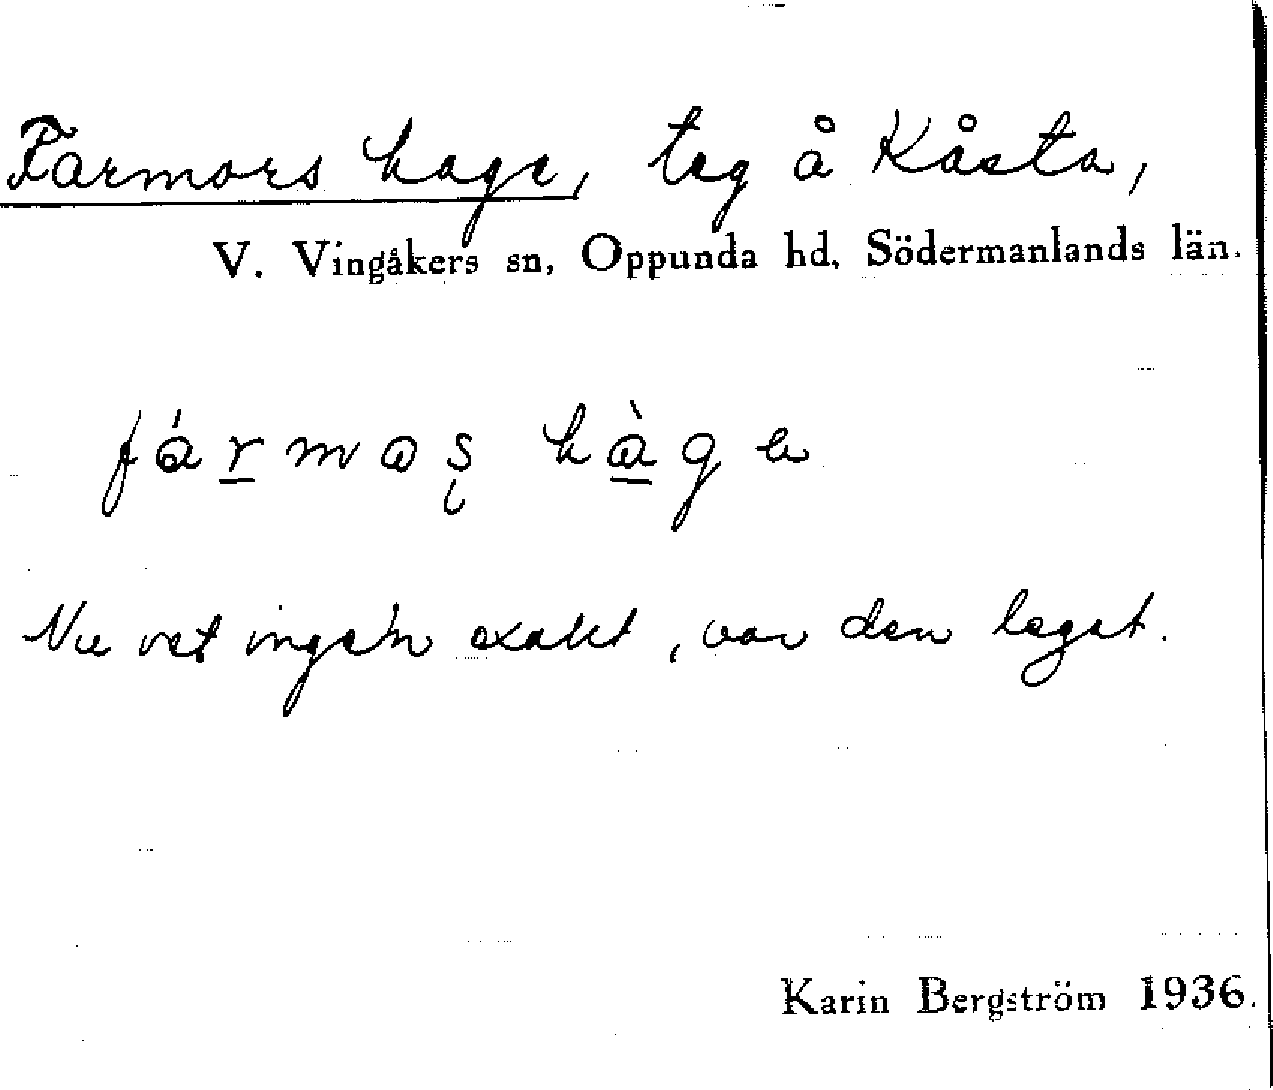 Farmors hage, teg å Kåsta,
V. Vingåkers sn, Oppunda hd, Södermanlands län.
fármas hàge
Nu vet ingen exakt, var den legat.
Karin Bergström 1936.